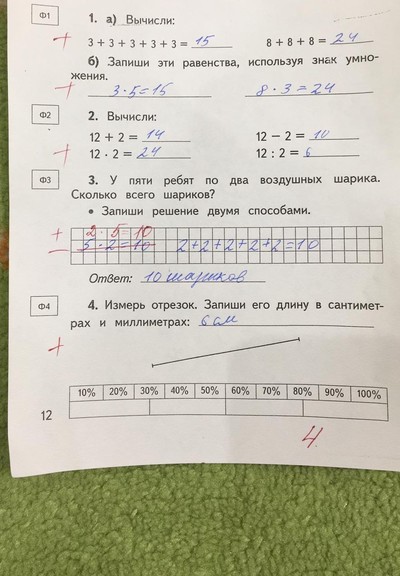 Ф1
1. а) Вычисли:
3 + 3 + 3 + 3 + 3 = 15 8 + 8 + 8 = 24
б) Запиши эти равенства, используя знак умно-
жения.
3·5=15 8·3=24
Ф2
2. Вычисли:
12 + 2 = 14 12 − 2 = 10
12 · 2 = 24 12 : 2 = 6
Ф3
3. У пяти ребят по два воздушных шарика.
Сколько всего шариков?
• Запиши решение двумя способами.
2·5=10
5·2=10 2+2+2+2+2=10
Ответ: 10 шариков
Ф4
4. Измерь отрезок. Запиши его длину в сантимет-
рах и миллиметрах: 6см
10% 20% 30% 40% 50% 60% 70% 80% 90% 100%
12
4